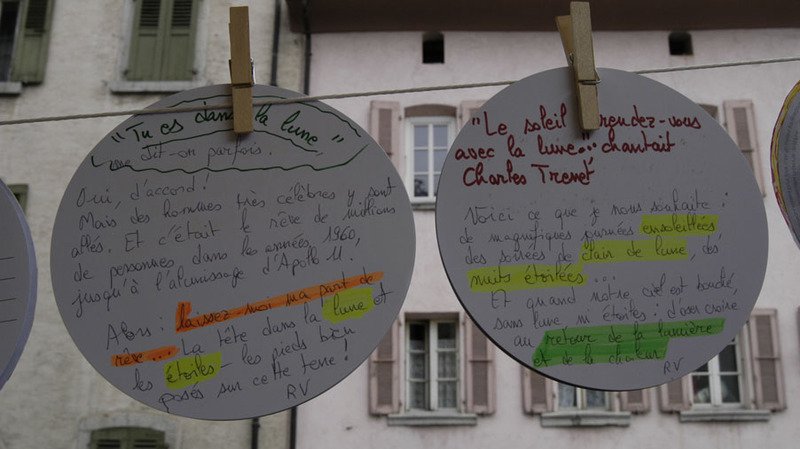 "Tu es dans la lune"
me dit-on parfois.
Oui, d'accord!
Mais des hommes très célèbres y sont
allés. Et c'était le rêve de millions
de personnes dans les années 1960,
jusqu'à l'alunissage d'Apollo 11.
Alors: laissez-moi ma part de
rêve... La tête dans la lune et
les étoiles - les pieds bien
posés sur cette terre!
RV
"Le soleil rendez-vous
avec la lune... chantait
Charles Trenet
Voici ce que je nous souhaite:
de magnifiques journées ensoleillées
des soirées de clair de lune, des
nuits étoilées...
Et quand notre ciel est bouché,
sans lune ni étoiles: d'oser croire
au retour de la lumière
et de la chaleur
RV